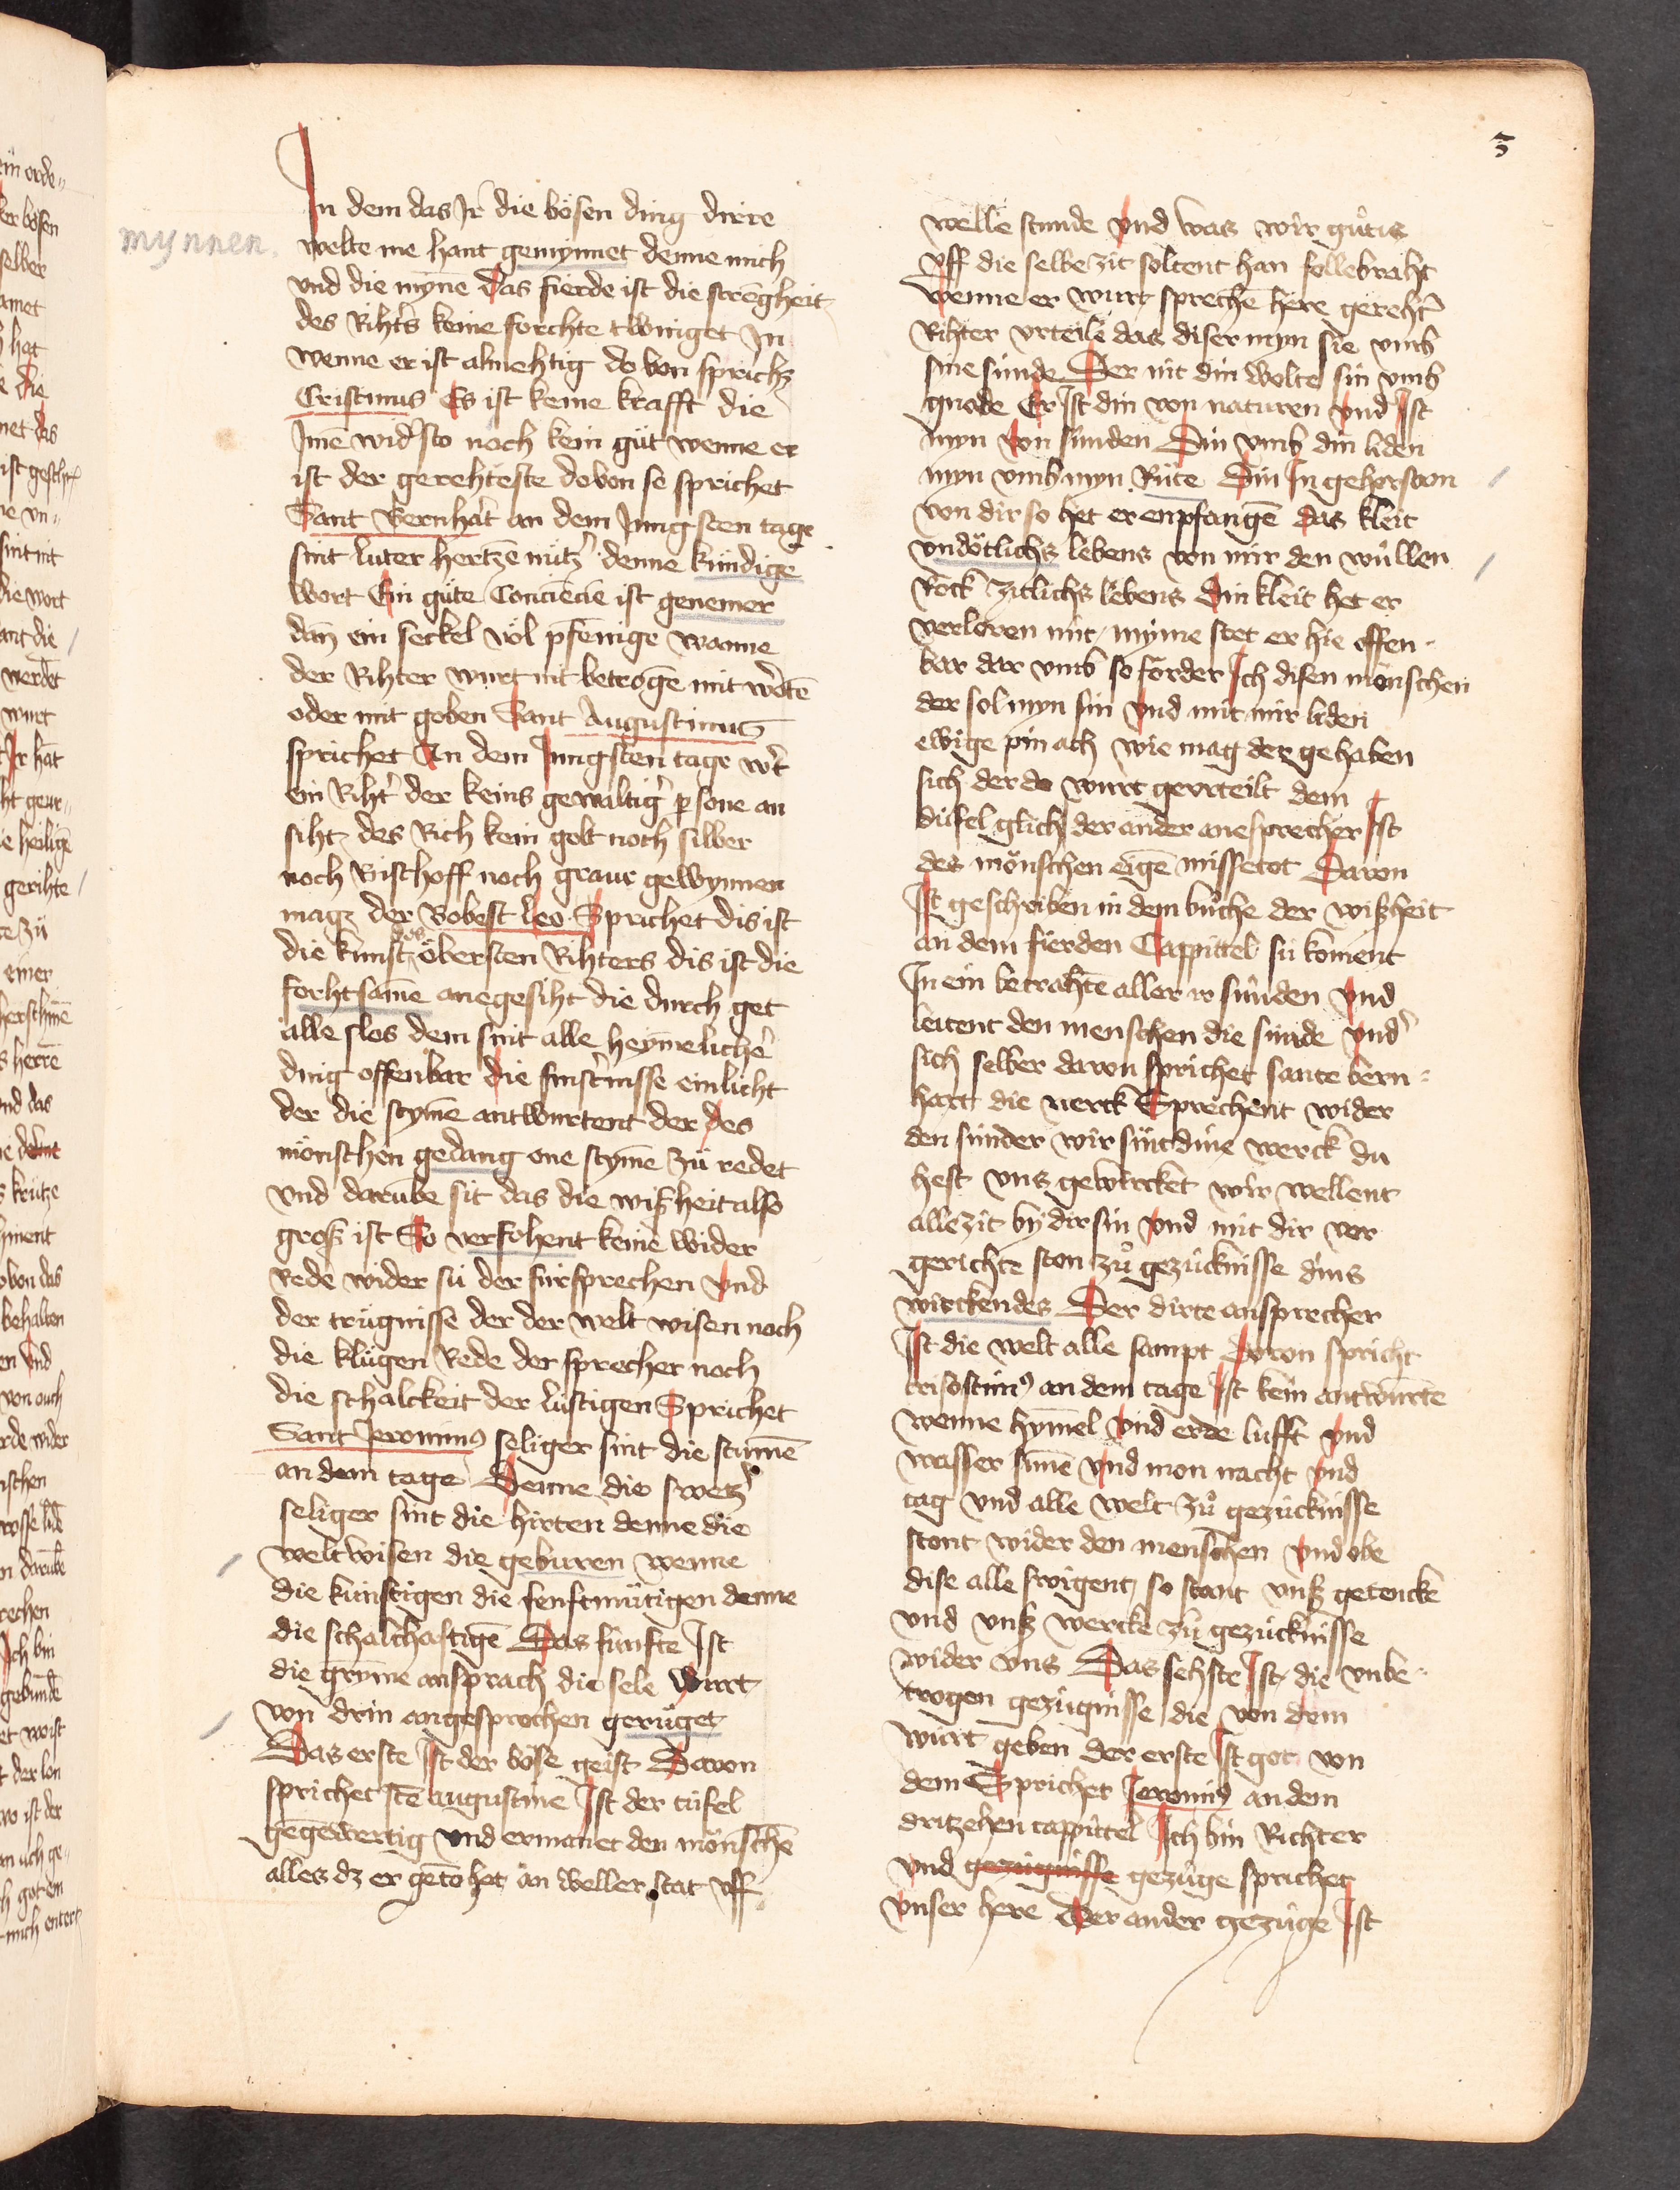 3
mynnen.
In dem das Jr die bösen ding dirre
welte me hant gemynnet denne mich
vnd die mȳne Das fierde ist die strēgheit
des Rihters keine forchte twinget Jn
wenne er ist almehtig do von sprichz
Cristimus Es ist keine krafft die
Jme widerstō noch kein gůt wenne er
ist der gerehteste do von so sprichet
Sant Bernhart an dem Jungsten tage
sint luter hertzē nütz denne kündige
wort Ein gůte Conciēcie ist genemer
dan̄ ein seckel vol pfenīge wanne
der Rihter wurt nit betrogē mit wortē
oder mit goben Sant Augustinus
sprichet An dem Jungsten tage wirt
ein Rihter der keins gewaltiger persone an
siht des Rich kein golt noch silber
noch Bischoff noch graue gewynnen
mag der Bobest leo Sprichet dis ist
die kunst des öbersten Rihters dis ist die
forhtsame anegesiht die durch get
alle slos dem sint alle heymelicher
ding offenbar die finsternisse einlicht
der die stȳme antwurtent der des
mönschen gedang one stȳme zů redet
vnd darūbe sit das die wißheit also
groß ist So verfohent keine wider
Rede wider sü der fürsprechen vnd
der trügnisse der der welt wisen noch
die klůgen Rede der sprecher noch
die schalckeit der lüstigen Sprichet
Sant Jeronimus seliger sint die stummē
an dem tage Denne die swetzer
seliger sint die hirten denne die
weltwisen die geburen wenne
die künstigen die senftmütigen denne
die schalchaftigē Das fünfte Jst
die grȳme ansprach die sele wurt
von drin angesprochen gerüget
Das erste Jst der böse geist Davon
sprichet stē augustine Jst der tüfel
gegēwertig vnd ermanet den mönschē
alles dz er getō het an weller stat vff
welle stunde vnd was wir gůtis
vff die selbe zit soltent han follebraht
wenne er wurt sprechē here gerehter
Rihter vrteile das diser myn sie vmb
sine sünde Der nit din wolte sin vmb
gnode Er Jst din von naturen vnd Jst
myn von sünden Din vmb din liden
myn vmb myn Rüte Din Jn gehorsam
von dir so het er enpfangē das kleit
vndötlichs lebens von mir den wüllen
Rock zitlichs lebens Din kleit het er
verloren mit myme stet er hie offen
bar dar vmb so förder Jch disen mönschen
der sol myn sin vnd mit mir liden
ewige pin ach wie mag der gehaben
sich der do wurt gevrteilt dem
düfel glich der ander anesprecher Jst
des mönschen eigē missetot Davon
Jst geschriben in dem bůche der wißheit
an dem fierden Cappittel sü koment
Jn ein betrahtē aller ir sünden vnd
leitent den menschen die sünde vnder
sich selber davon sprichet sante bern
hart die werck Sprechent wider
den sünder wir sint dine werck du
hest vns gewircket wir wellent
allezit by dir sin vnd mit dir ver
gerichte ston zů gezücknisse dins
wirckendes Der dirte ansprecher
Jst die welt alle sampt Davon spricht
crisostimus an dem tage Jst kein antwurte
wenne hȳmel vnd erde lufft vnd
wasser sunē vnd mon nacht vnd
tag vnd alle welt zů gezücknisse
stont wider den menschen vnd obe
dise alle swigent so stont vnß getencke
vnd vnß wercke zů gezücknisse
wider vns Das sehste Jst die vnbe
trogen gezügnisse die von dem
wurt geben der erste Jst got von
dem Sprichet Jeronimus an dem
dritzehen cappittel Jch bin Richter
vnd gezügnisse gezüge sprichet
vnser here Der ander gezüge Jst